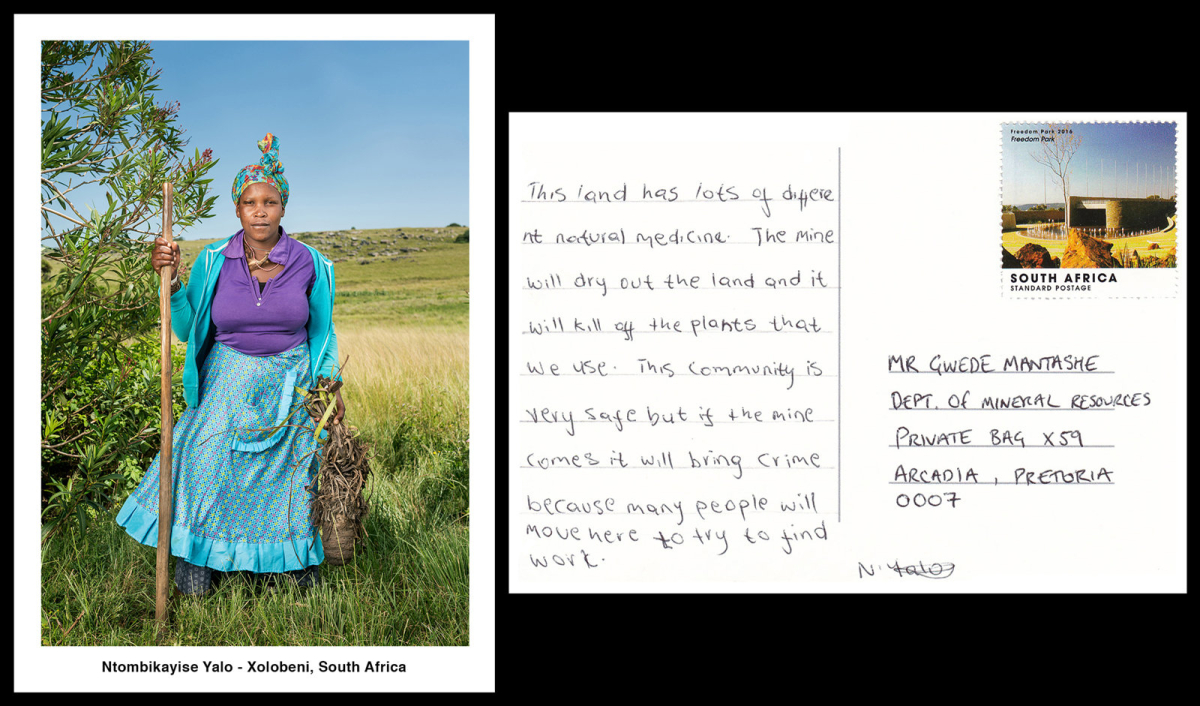 Ntombikayise Yalo - Xolobeni, South Africa
This land has lots of differe
nt natural medicine. The mine
will dry out the land and it
will kill off the plants that
we use. This community is
very safe but if the mine
comes it will bring crime
because many people will
move here to try to find
work.
Freedom Park 2016
Freedom Park
SOUTH AFRICA
STANDARD POSTAGE
MR GWEDE MANTASHE
DEPT. OF MINERAL RESOURCES
PRIVATE BAG X59
ARCADIA, PRETORIA
0007
N. Yalo